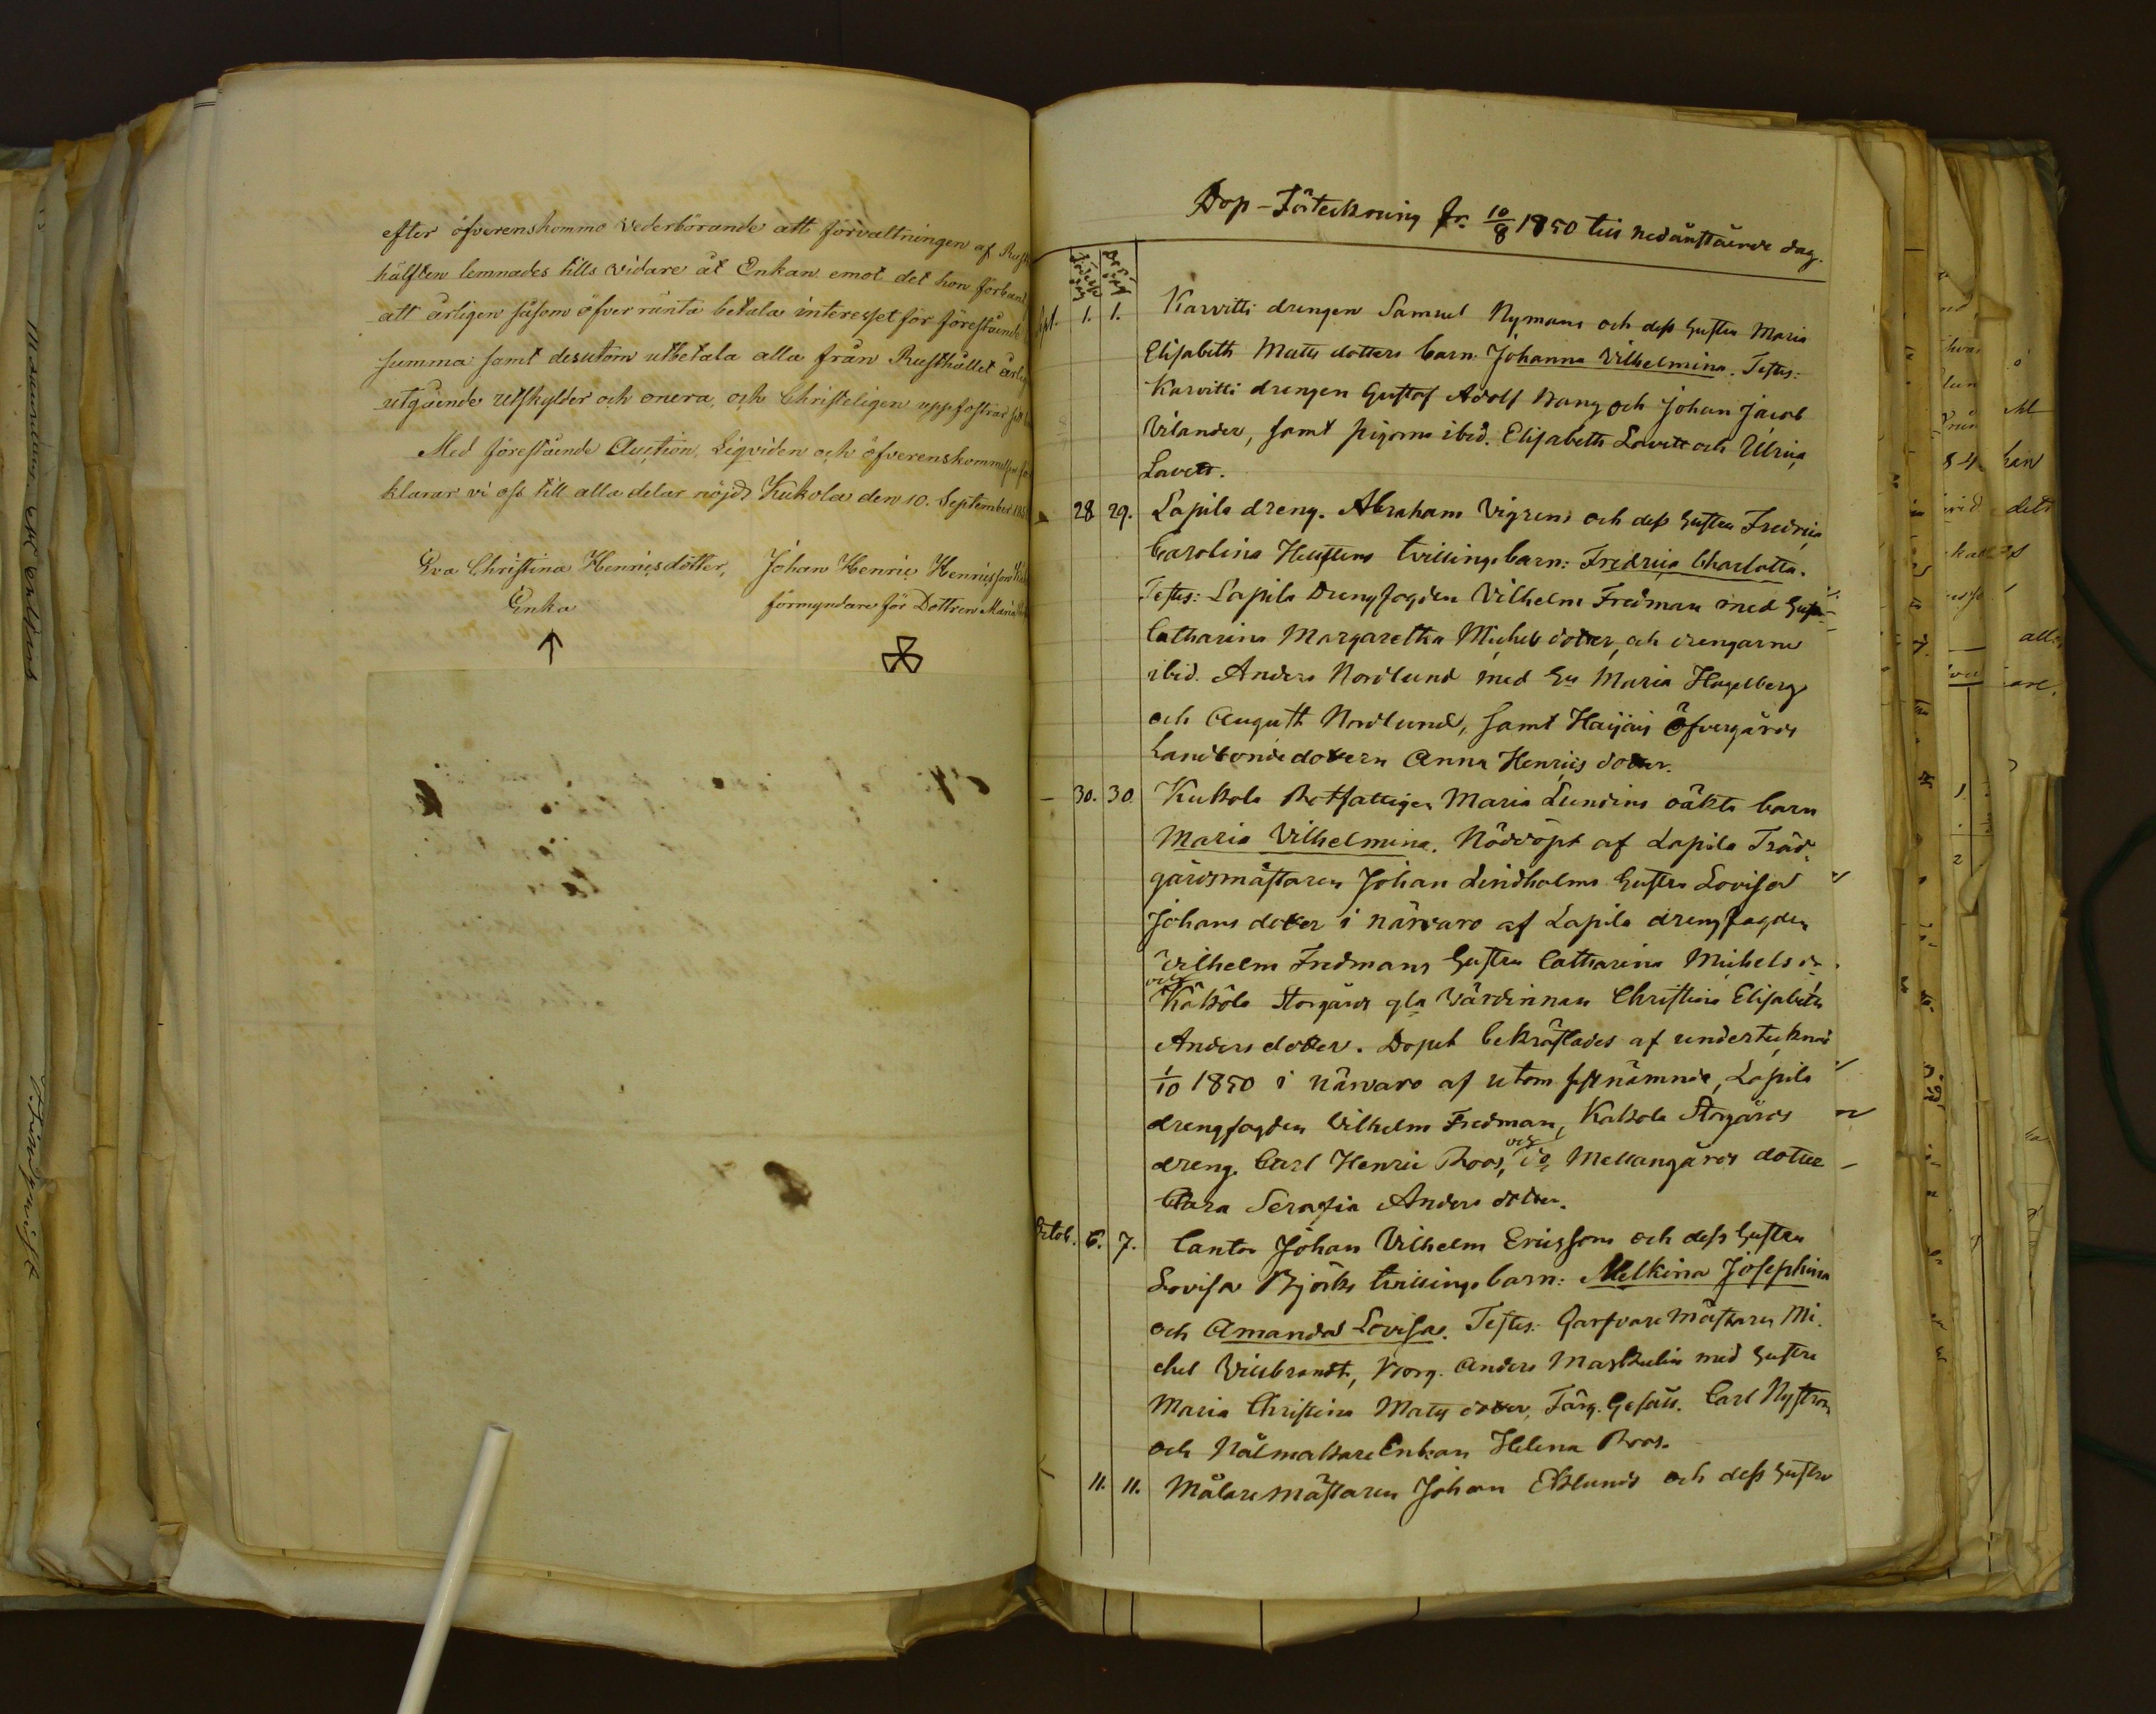 efter öfverenskommo vederbörande att förvaltningen af
hälften lemnades tills vidare åt Enkan emot det hon förband
att årligen såsom öfver ränta betala interesset för förestående
summa samt desutom utbetala alla från Rusthållet
utgående utskylder och onera, och Christeligen uppfostrar
Med förestående Auction, Liqviden och
klarar vi oss till alla delar nöjda Kukola den 10. September
Eva Christina Henricsdotter, Johan Henric Henricsson
Enka förmyndare för Dottren Maria
Dop-Förteckning fr. 10/8 1850 till nedanstående dag.
Födelse dag Dop dag
Sept. 1. 1. Karvitti drengen Samuel Nymans och dess hustru Maria
Elisabeth Mats dotters barn: Johanna Vilhelmina. Testes:
Karvitti drengen Gustaf Adolf Wang och Johan Jacob
Vilander, samt pigorna ibid. Elisabeth Lovett och Ulrica
Lovett.
28 29. Lapila dreng. Abraham Vigrens och dess hustru Fredrica
Carolina Hellstens tvillingebarn: Fredrica Charlotta.
Testes: Lapila Drengfogden Vilhelm Fredman med hustru
Catharina Margaretha Michels dotter, och drengarne
ibid. Anders Nordlund med hu Maria Hagelberg
och August Nordlund, samt Haijais Öfvergårds
Landbondedottern Anna Henrics dotter.
— 30. 30 Kukola Rotfattigen Maria Lundins oäkta barn
Maria Vilhelmina. Nöddöpt af Lapila Träd
gårdsmästaren Johan Lindholms hustru Lovisa
Johans dotter i närvaro af Lapila drengfogden
Vilhelm Fredmans hustru Catharina Michels dr
och
Kaköla Storgårds gla Värdinnan Christina Elisabeth
Anders dotter. Dopet bekräftades af undertecknad
1/10 1850 i närvaro af utom sistnämnde, Lapila
drengfogden Vilhelm Fredman, Kakola Storgårds
dreng. Carl Henric Roos, och do Mellangårds dotter
Clara Serafia Anders dotter.
Octob. 6. 7. Cantor Johan Vilhelm Ericssons och dess hustru
Lovisa Björks tvillingebarn: Melkina Josephina
och Amanda Lovisa. Testes: Garfvare Mästaren Mi
chel Villebrandt, Borg. Anders Maskulin med hustru
Maria Christina Mats dotter, Färg. Gesäll. Carl Nyström
och Nålmakare Enkan Helena Roos.
— 11. 11. Målare Mästaren Johan Eklunds och dess hustru